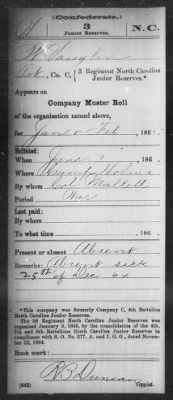 (Confederate.)
3
Junior Reserves.
N.C.
W Vaughn
Co. C, 3 Regiment North Carolina
Junior Reserves.*
Appears on
Company Muster Roll
of the organization named above,
for Jan & Feb, 186
Enlisted:
When June 186
Where
By whom Col Mallett
Period War
Last paid:
By whom
To what time 186
Present or absent Absent
Remarks: Absent sick
25th of Dec 64
*This company was formerly Company C, 6th Battalion
North Carolina Junior Reserves.
The 3d Regiment North Carolina Junior Reserves was
organized January 3, 1865, by the consolidation of the 4th,
7th and 8th Battalions North Carolina Junior Reserves in
compliance with S. O. No. 277, A. and I. G. O., dated November
22, 1864.
Book mark:
R B Duncan
(642)
Copyist.